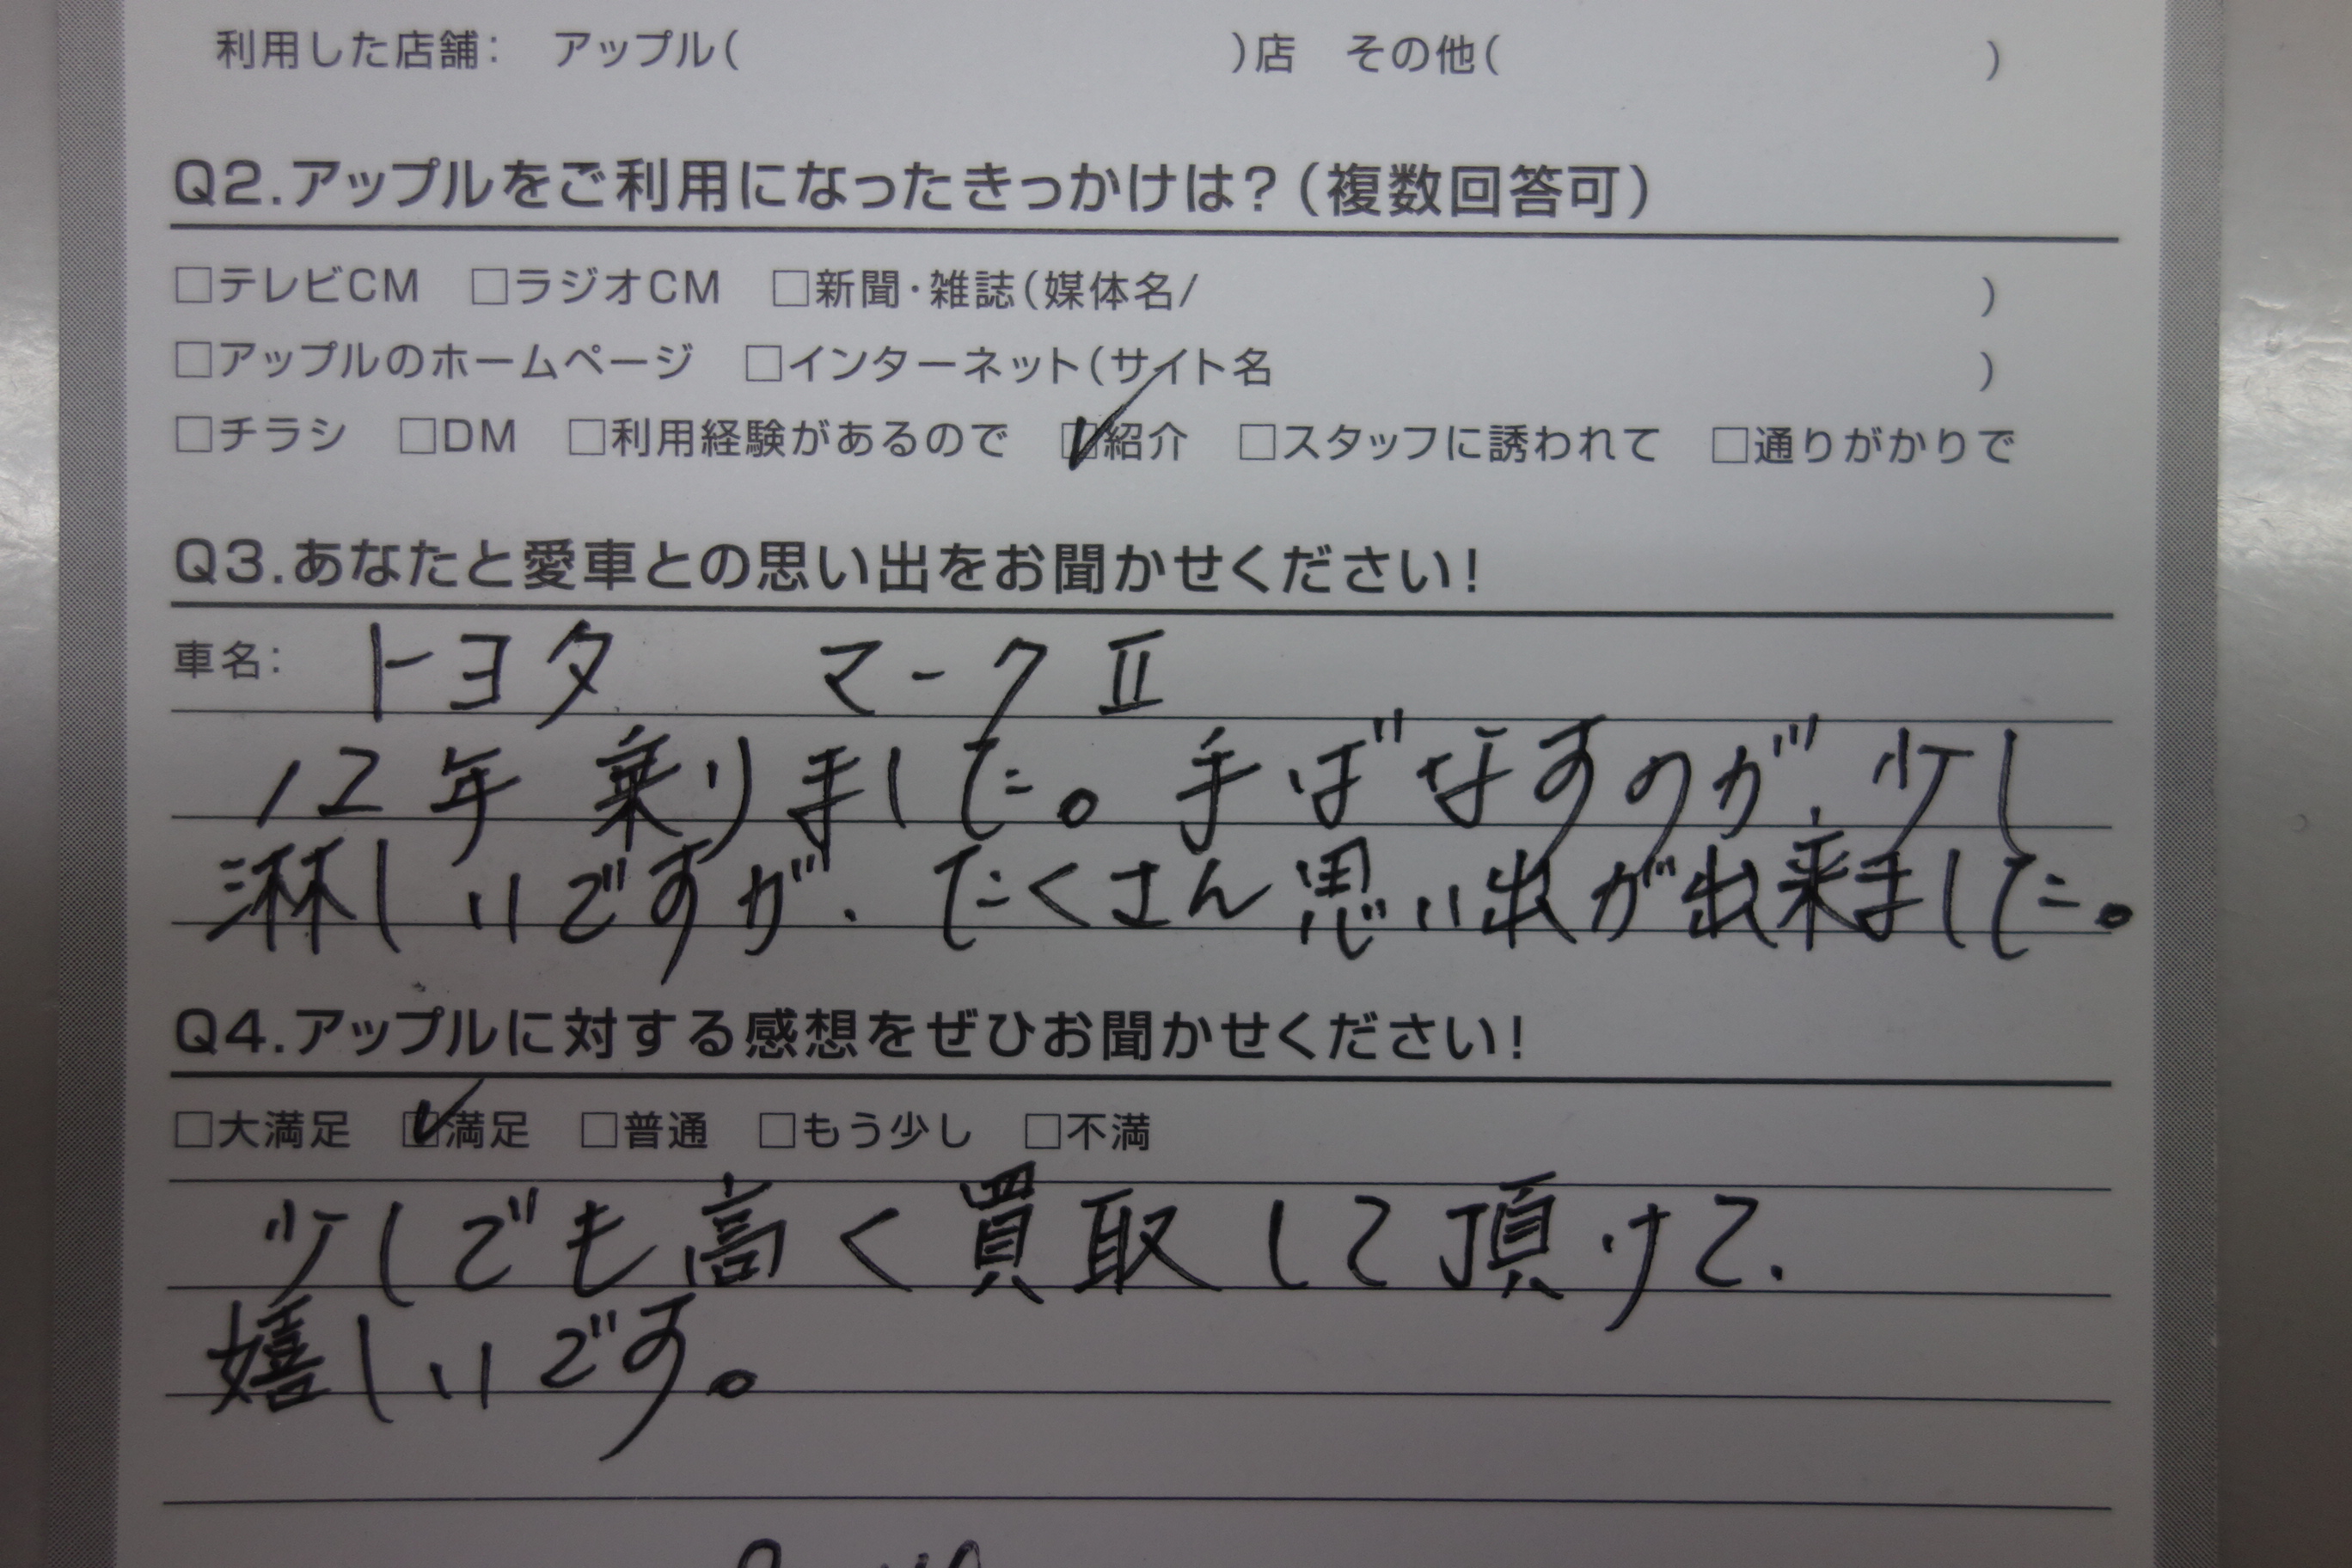 利用した店舗： アップル( )店 その他( )
Q2.アップルをご利用になったきっかけは？(複数回答可)
□テレビCM □ラジオCM □新聞・雑誌(媒体名/ )
□アップルのホームページ □インターネット(サイト名 )
□チラシ □DM □利用経験があるので ☑紹介 □スタッフに誘われて □通りがかりで
Q3.あなたと愛車との思い出をお聞かせください！
車名： トヨタ マークⅡ
12年乗りました。手ばなすのが、少し
淋しいですが、たくさん思い出が出来ました。
Q4.アップルに対する感想をぜひお聞かせください！
□大満足 ☑満足 □普通 □もう少し □不満
少しでも高く買取して頂けて、
嬉しいです。